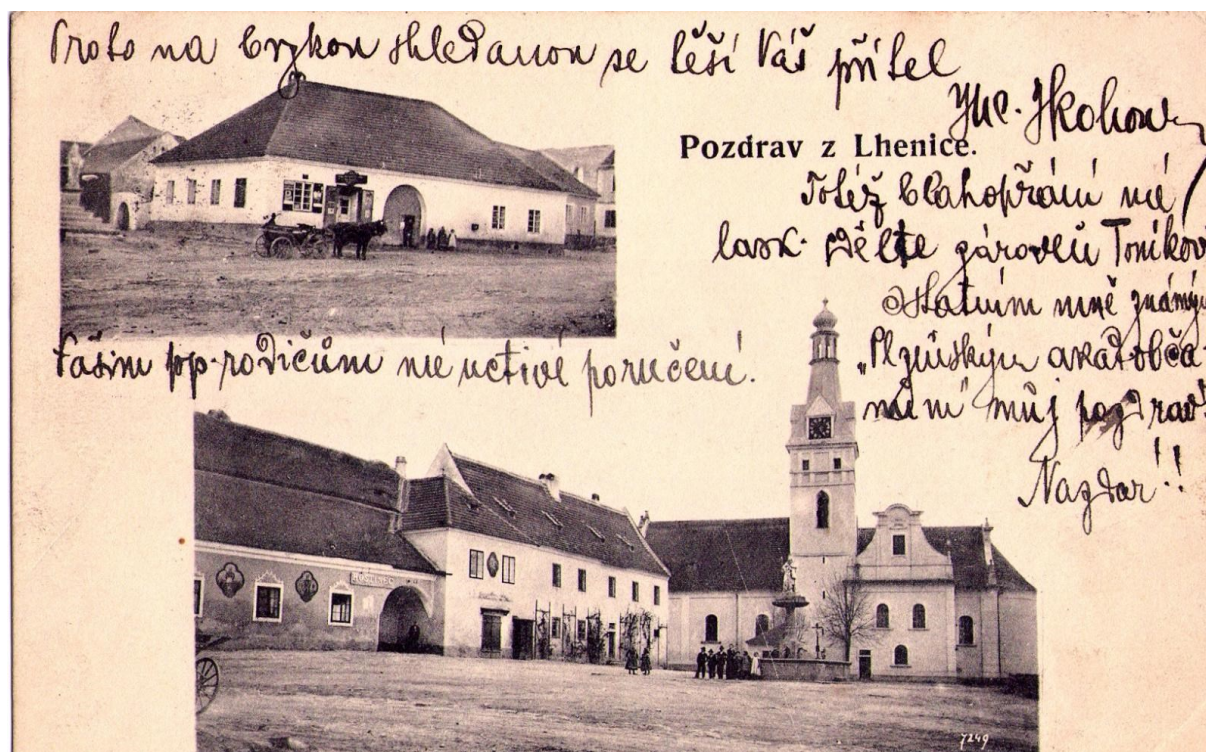 Proto na brzkou shledanou se těší Váš přítel
Pozdrav z Lhenice.
Totéž blahopřání mé
lask. sdělte zároveň Toníkovi
Ostatním mně známým
„Plzeňským akad. občanům" můj pozdrav.
Nazdar!!
Vašim pp. rodičům mé uctivé poručení.
HOSTINEC
7249